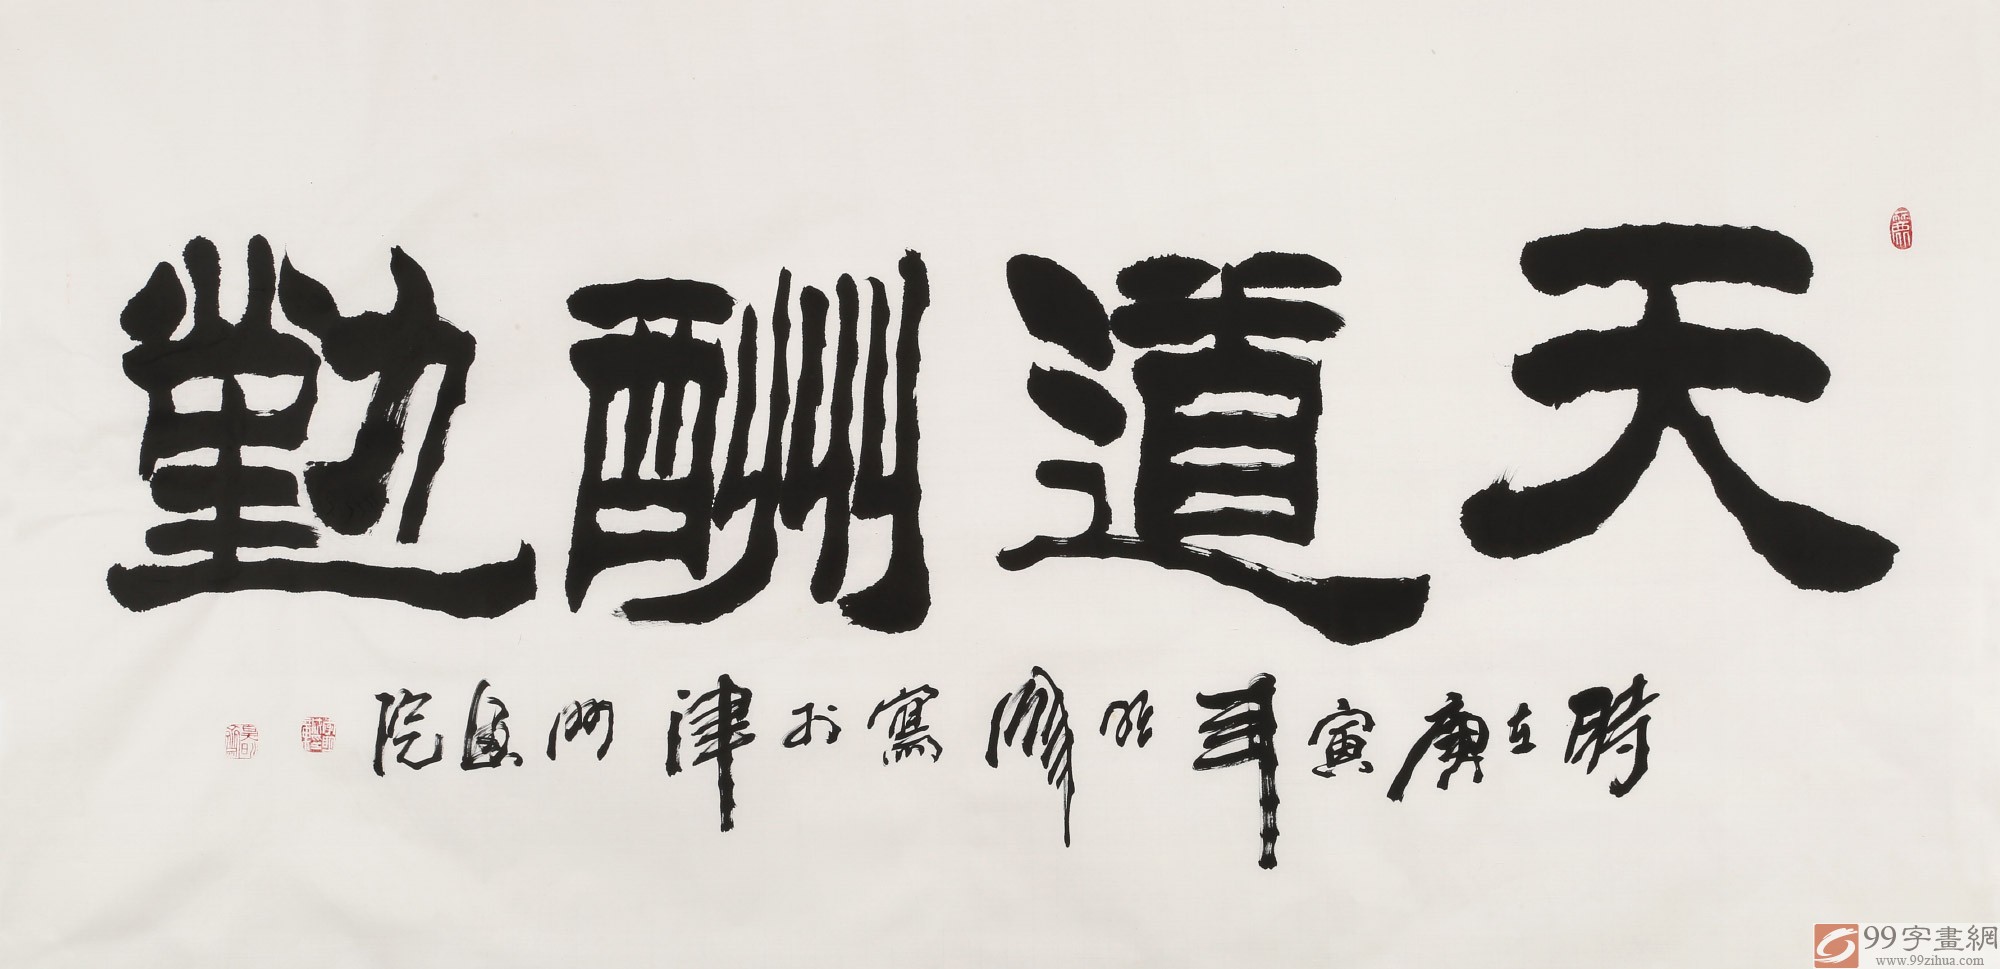 天道酬勤
時在庚寅年 寫於津門 院
99字畫網
www.99zihua.com